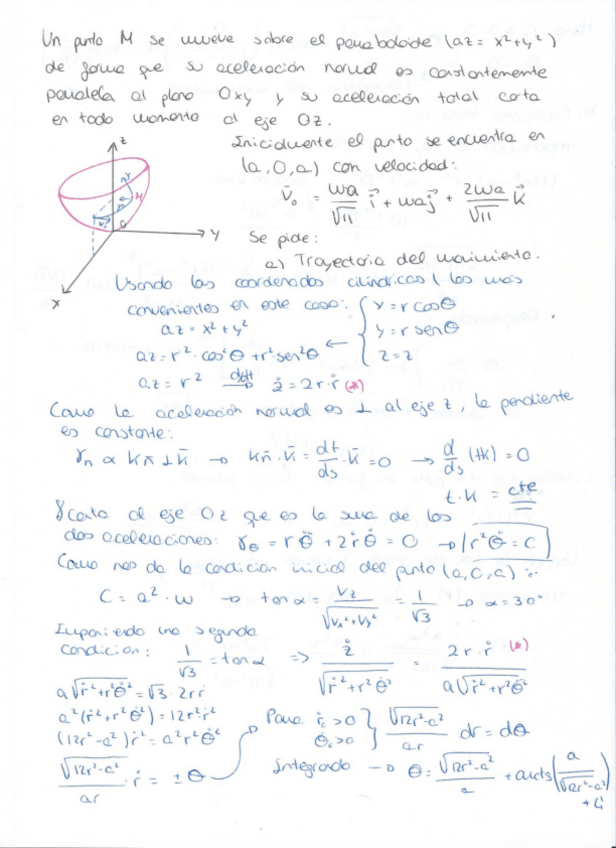 Un punto M se mueve sobre el paraboloide (az = x²+y²)
de forma que su aceleración normal es constantemente
paralela al plano Oxy y su aceleración total corta
en todo momento al eje Oz.
Inicialmente el punto se encuentra en
(a,0,a) con velocidad:
v̄₀ = wa/√11 i⃗ + waj⃗ + 2wa/√11 k⃗
Se pide:
a) Trayectoria del movimiento.
z
M
O
y
x
Usando las coordenadas cilíndricas (las más
convenientes en este caso: { x = r cosθ
az = x² + y²
y = r senθ
az = r²·cos²θ + r²sen²θ ←
z = z
az = r² d/dt→ ż = 2r·ṙ (*)
Como la aceleración normal es ⊥ al eje z, la pendiente
es constante:
γn ∝ kn̄ ⊥ k̄ → kn̄·k̄ = dt/ds·k̄ = 0 → d/ds (tk) = 0
t·k = cte
γ corta al eje Oz que es la suma de las
dos aceleraciones: γθ = rθ̈ + 2ṙθ̇ = 0 → r²θ̇ = C
Como nos da la condición inicial del punto (a,0,a):
C = a²·w → tanα = Vz/√(Vx²+Vy²) = 1/√3 → α = 30°
Imponiendo una segunda
condición: 1/√3 = tanα ⇒ ż/√(ṙ²+r²θ̇²) = 2r·ṙ (*)/a√(ṙ²+r²θ̇²)
a√(ṙ²+r²θ̇²) = √3·2rṙ
a²(ṙ²+r²θ̇²) = 12r²ṙ²
(12r²-a²)ṙ² = a²r²θ̇²
√(12r²-a²)/ar · ṙ = ± θ̇
Para ṙ₀>0 θ̇₀>0 } √(12r²-a²)/ar dr = dθ
Integrando → θ = √(12r²-a²)/a + arctg(a/√(12r²-a²)) +